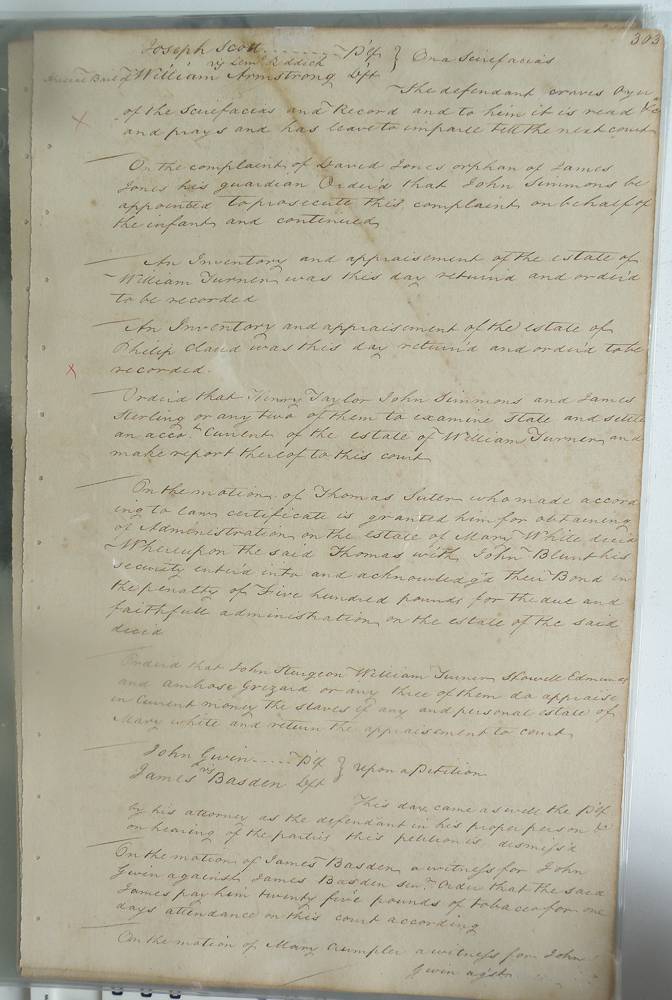 303
Joseph Scott ........ Plf } On a Scirefacias
vs Leml Riddick
Special Bail of William Armstrong Dft
The defendant craves Oyer
of the Scirefacias and Record and to him it is read &c
and prays and has leave to imparle till the next court
On the complaint of David Jones orphan of James
Jones his guardian Order'd that John Simmons be
appointed to prosecute this complaint on behalf of
the infant and continued
An Inventory and appraisement of the estate of
William Turner was this day return'd and order'd
to be recorded
An Inventory and appraisement of the estate of
Philip Claud was this day return'd and order'd to be
recorded.
Order'd that Henry Taylor John Simmons and James
Sterling or any two of them to examine state and settle
an accot. Current of the estate of William Turner and
make report thereof to this court
On the motion of Thomas Suter who made accord
ing to law certificate is granted him for obtaining
of Administration on the estate of Mary White dec'd
Whereupon the said Thomas with John Blunt his
security enter'd into and acknowledg'd their Bond in
the penalty of Five hundred pounds for the due and
faithfull administration on the estate of the said
dec'd
Order'd that John Sturgeon William Turner Howell Edmunds
and Ambrose Grizard or any three of them do appraise
in Current money the slaves if any and personal estate of
Mary White and return the appraisement to court
John Gwin ..... Plf } Upon a Petition
vs
James Basden Dft
This day came as well the Plf
by his attorney as the defendant in his proper person &
on hearing of the parties this petition is dismiss'd
On the motion of James Basden a witness for John
Gwin against James Basden senr. Order that the said
James pay him twenty five pounds of tobacco for one
days attendance on this court according
On the motion of Mary Crumpler a witness for John
Gwin agst